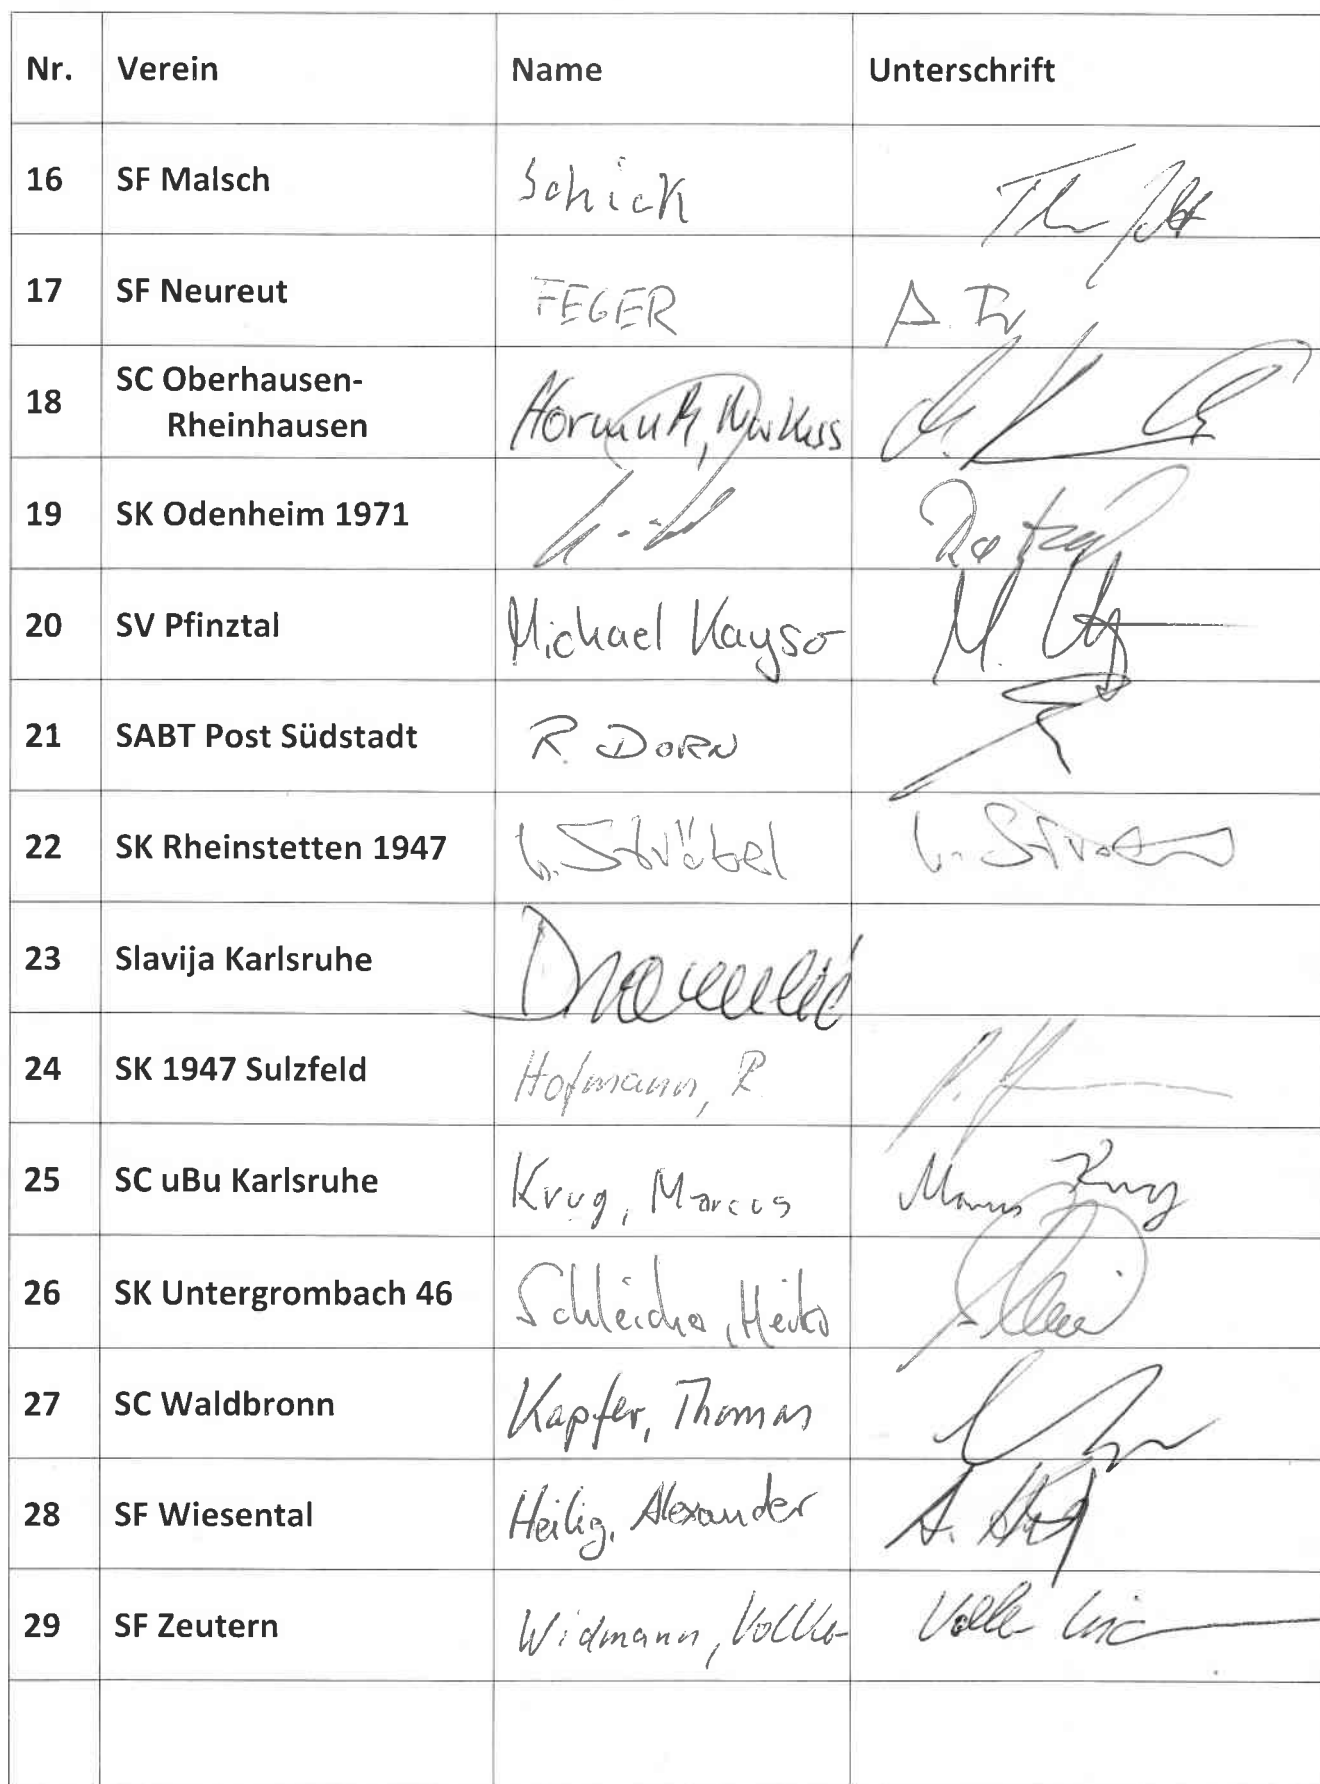 Nr. Verein Name Unterschrift
16 SF Malsch Schick
17 SF Neureut FEGER A.
18 SC Oberhausen-
Rheinhausen Hormuth, Markus
19 SK Odenheim 1971
20 SV Pfinztal Michael Kayser M.
21 SABT Post Südstadt R. DORN
22 SK Rheinstetten 1947 Ströbel
23 Slavija Karlsruhe
24 SK 1947 Sulzfeld Hofmann, R
25 SC uBu Karlsruhe Krug, Marcus Marcus Krug
26 SK Untergrombach 46 Schleicher, Heiko
27 SC Waldbronn Kapfer, Thomas
28 SF Wiesental Heilig, Alexander A.
29 SF Zeutern Widmann, Volker Volker